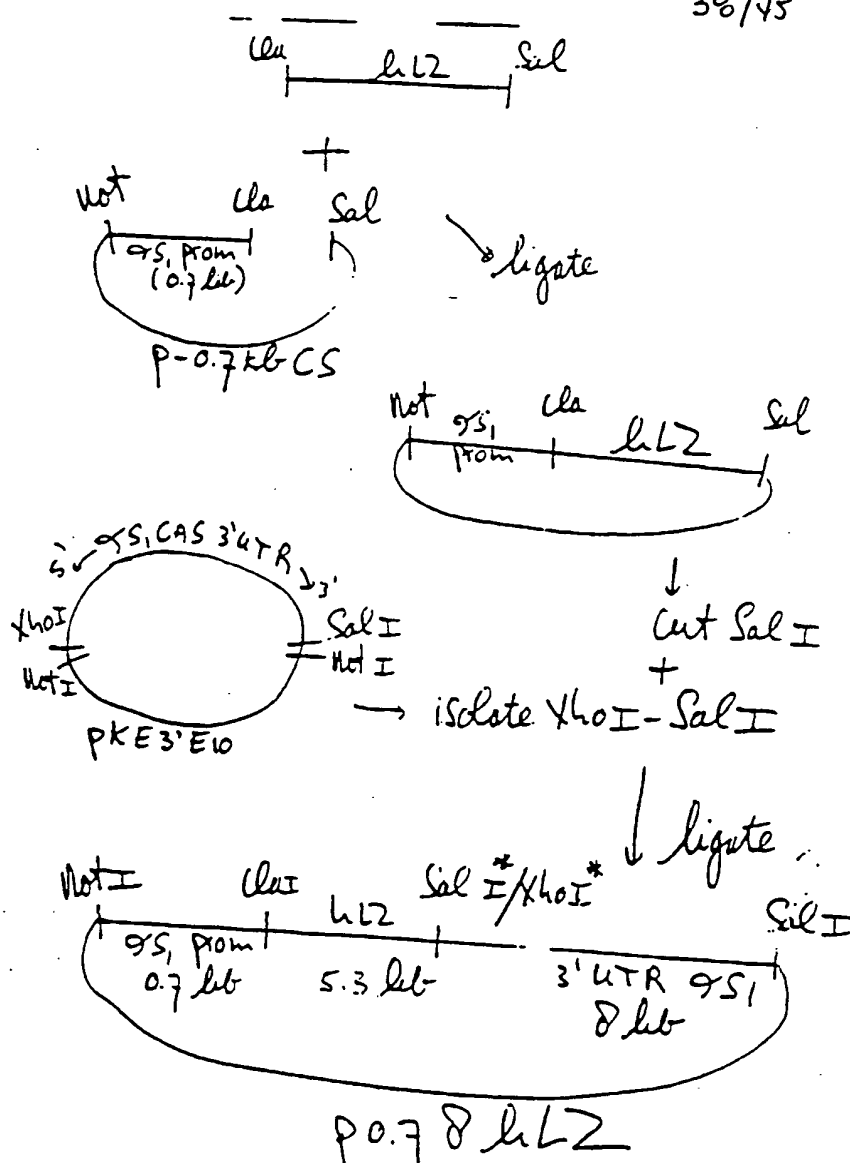 38/45
Cla hLZ Sal
+
Not Cla Sal
αS₁ prom
(0.7 kb)
ligate
p-0.7kb CS
Not αS₁ Cla hLZ Sal
prom
5' αS₁ CAS 3'UTR 3'
XhoI Sal I
NotI Not I
pKE3'E10
Cut Sal I
+
isolate XhoI-Sal I
ligate
Not I ClaI hLZ Sal I*/XhoI* Sal I
αS₁ prom
0.7 kb 5.3 kb 3' UTR αS₁
8 kb
p0.7 8 hLZ